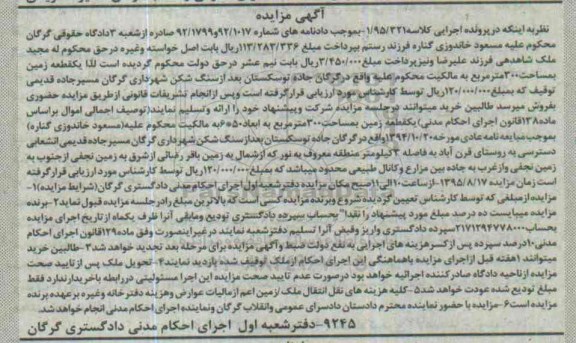 آگهی مزایده
نظر به اینکه در پرونده اجرایی کلاسه ۱/۹۵/۳۲۱-بموجب دادنامه های شماره ۹۲/۱۰۱۷و۹۲/۱۷۹۹ صادره از شعبه ۳دادگاه حقوقی گرگان
محکوم علیه مسعود خاندوزی گناره فرزند رستم بپرداخت مبلغ ۱۱۳/۲۸۳/۳۳۶ریال بابت اصل خواسته وغیره در حق محکوم له مجید
ملک شاهدهی فرزند علیرضا ونیزپرداخت مبلغ۳/۴۵۰/۰۰۰ریال بابت نیم عشر درحق دولت محکوم گردیده است لذا یکقطعه زمین
بمساحت۳۰۰مترمربع به مالکیت محکوم علیه واقع درگرگان جاده توسکستان بعد از سنگ شکن شهرداری گرگان مسیرجاده قدیمی
توقیف که بمبلغ۱۲۰/۰۰۰/۰۰۰ریال توسط کارشناس مورد ارزیابی قرارگرفته است وپس ازانجام تشریفات قانونی ازطریق مزایده حضوری
بفروش میرسد طالبین خرید میتوانند درجلسه مزایده شرکت وپیشنهاد خود را ارائه وتسلیم نمایند(توصیف اجمالی اموال براساس
ماده۱۳۸قانون اجرای احکام مدنی)یکقطعه زمین بمساحت۳۰۰مترمربع به ابعاد۵۰*۶به مالکیت محکوم علیه(مسعود خاندوزی گناره)
بموجب مبایعه نامه عادی مورخه۱۳۹۴/۱۰/۲۰واقع درگرگان جاده توسکستان بعدازسنگ شکن شهرداری گرگان مسیرجاده قدیمی انشعابی
دسترسی به روستای قرن آباد به فاصله ۳کیلومتر منطقه معروف به نور که ازشمال به زمین باقر رفائی ازشرق به زمین نجفی ازجنوب به
زمین نجفی وازغرب به جاده بین مزارع وکانال طبیعی محدود میباشد که بمبلغ۱۲۰/۰۰۰/۰۰۰ریال توسط کارشناس مورد ارزیابی قرارگرفته
است زمان مزایده ۱۳۹۵/۸/۱۷-ازساعت۱۰الی۱۱صبح مکان مزایده دفترشعبه اول اجرای احکام مدنی دادگستری گرگان(شرایط مزایده)۱-
مزایده ازمبلغی که توسط کارشناس تعیین گردیده شروع وبرنده مزایده کسی است که بالاترین مبلغ رادرجلسه مزایده قبول نماید۲-برنده
مزایده میبایست ده درصد مبلغ مورد پیشنهاد را نقدا"بحساب سپرده دادگستری تودیع ومابقی آنرا ظرف یکماه از تاریخ اجرای مزایده
بحساب۲۱۷۱۲۹۴۷۷۸۰۰۰سپرده دادگستری واریز وفیش آنرا تسلیم دفترشعبه نمایند درغیراینصورت وفق ماده۱۲۹قانون اجرای احکام
مدنی۱۰درصد سپرده پس ازکسرهزینه های اجرایی به نفع دولت ضبط وآگهی مزایده برای مرحله بعد تجدید خواهد شد۳-طالبین خرید
میتوانند ۱هفته قبل ازاجرای مزایده باهماهنگی این اجرای احکام ازملک توقیف شده بازدید نمایند۴-تحویل ملک پس ازتایید صحت
مزایده ازناحیه دادگاه صادرکننده اجرائیه خواهد بود درصورت عدم تایید صحت مزایده این اجرا مسئولیتی دررابطه باخریدارندارد فقط
مبلغ تودیع شده عودت خواهد شد۵-کلیه هزینه های نقل انتقال ملک ازمین اعم ازمالیات عوارض وهزینه دفترخانه وغیره برعهده برنده
مزایده است۶-مزایده باحضور نماینده محترم دادستان دادسرای عمومی وانقلاب گرگان ونماینده اجرای احکام مدنی انجام خواهدشد.
۹۲۴۵-دفترشعبه اول اجرای احکام مدنی دادگستری گرگان